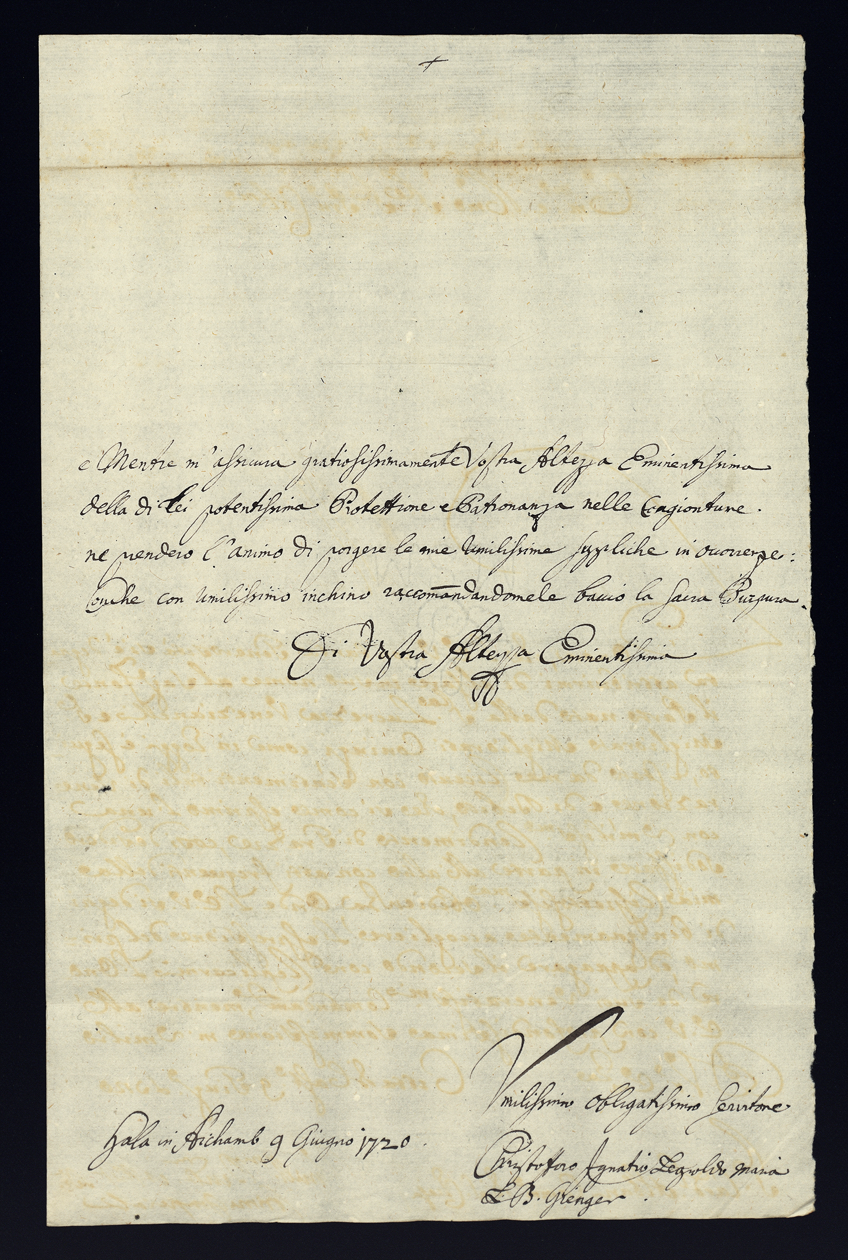 +
e Mentre m'assicura gratiosissimamente Vostra Altezza Eminentissima
della di Lei potentissima Protettione e Patronanza nelle Congionture.
ne prendero l'animo di porgere le mie Umilissime suppliche in occorrenze:
Onde con umilissimo inchino raccomandandomele bacio la Sacra Purpura.
Di Vostra Altezza Eminentissima
Umilissimo obligatissimo Servitore
Hala in Aichamb 9 Giugno 1720.
Christoforo Ignatio Leopoldo Maria
L. B. Grienger.